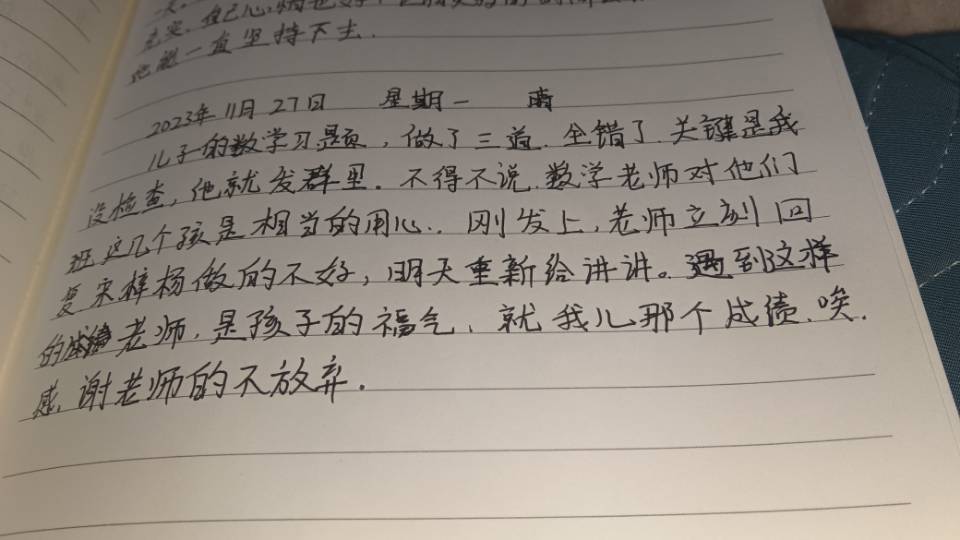 充实.自己心情也好
能一直坚持下去.
2023年11月27日 星期一
儿子的数学习题,做了三道.全错了.关键是我
没检查,他就发群里.不得不说.数学老师对他们
班这几个孩是相当的用心..刚发上,老师立刻回
复宋梓杨做的不好,明天重新给讲讲。遇到这样
的老师.是孩子的福气.就我儿那个成绩.唉.
感.谢老师的不放弃.